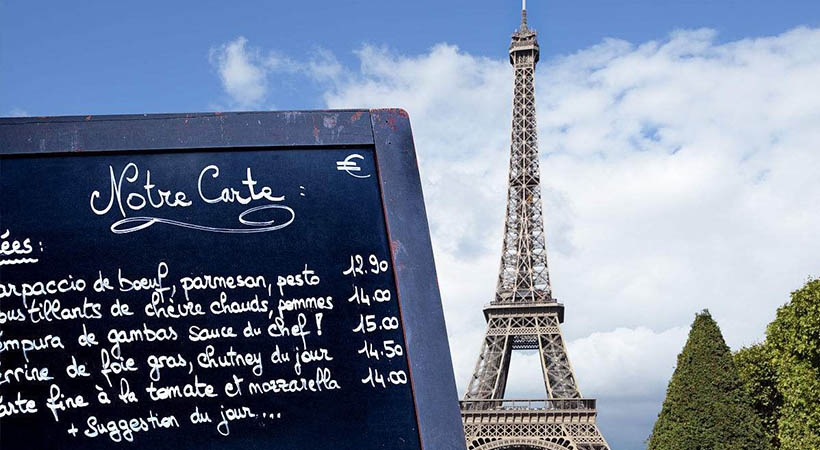 Notre Carte :
€
ées :
arpaccio de boeuf, parmesan, pesto 12.90
oustillants de chèvre chauds, pommes 14.00
empura de gambas sauce du chef ! 15.00
errine de foie gras, chutney du jour 14.50
arte fine à la tomate et mozzarella 14.00
+ suggestion du jour ...